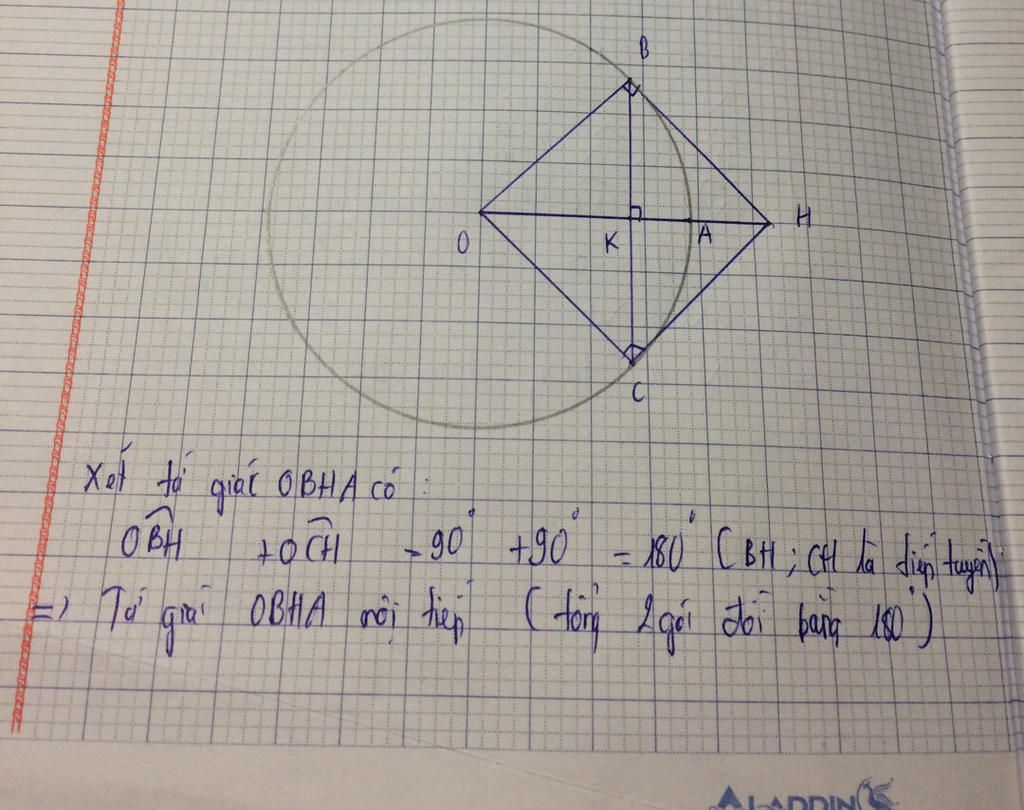 B
O
K
A
H
C
Xét tứ giác OBHA có :
OBH + OCH = 90° + 90° = 180° (BH ; CH là tiếp tuyến)
=> Tứ giá OBHA nội tiếp (tổng 2 gói đối bằng 180°)
ALADDIN